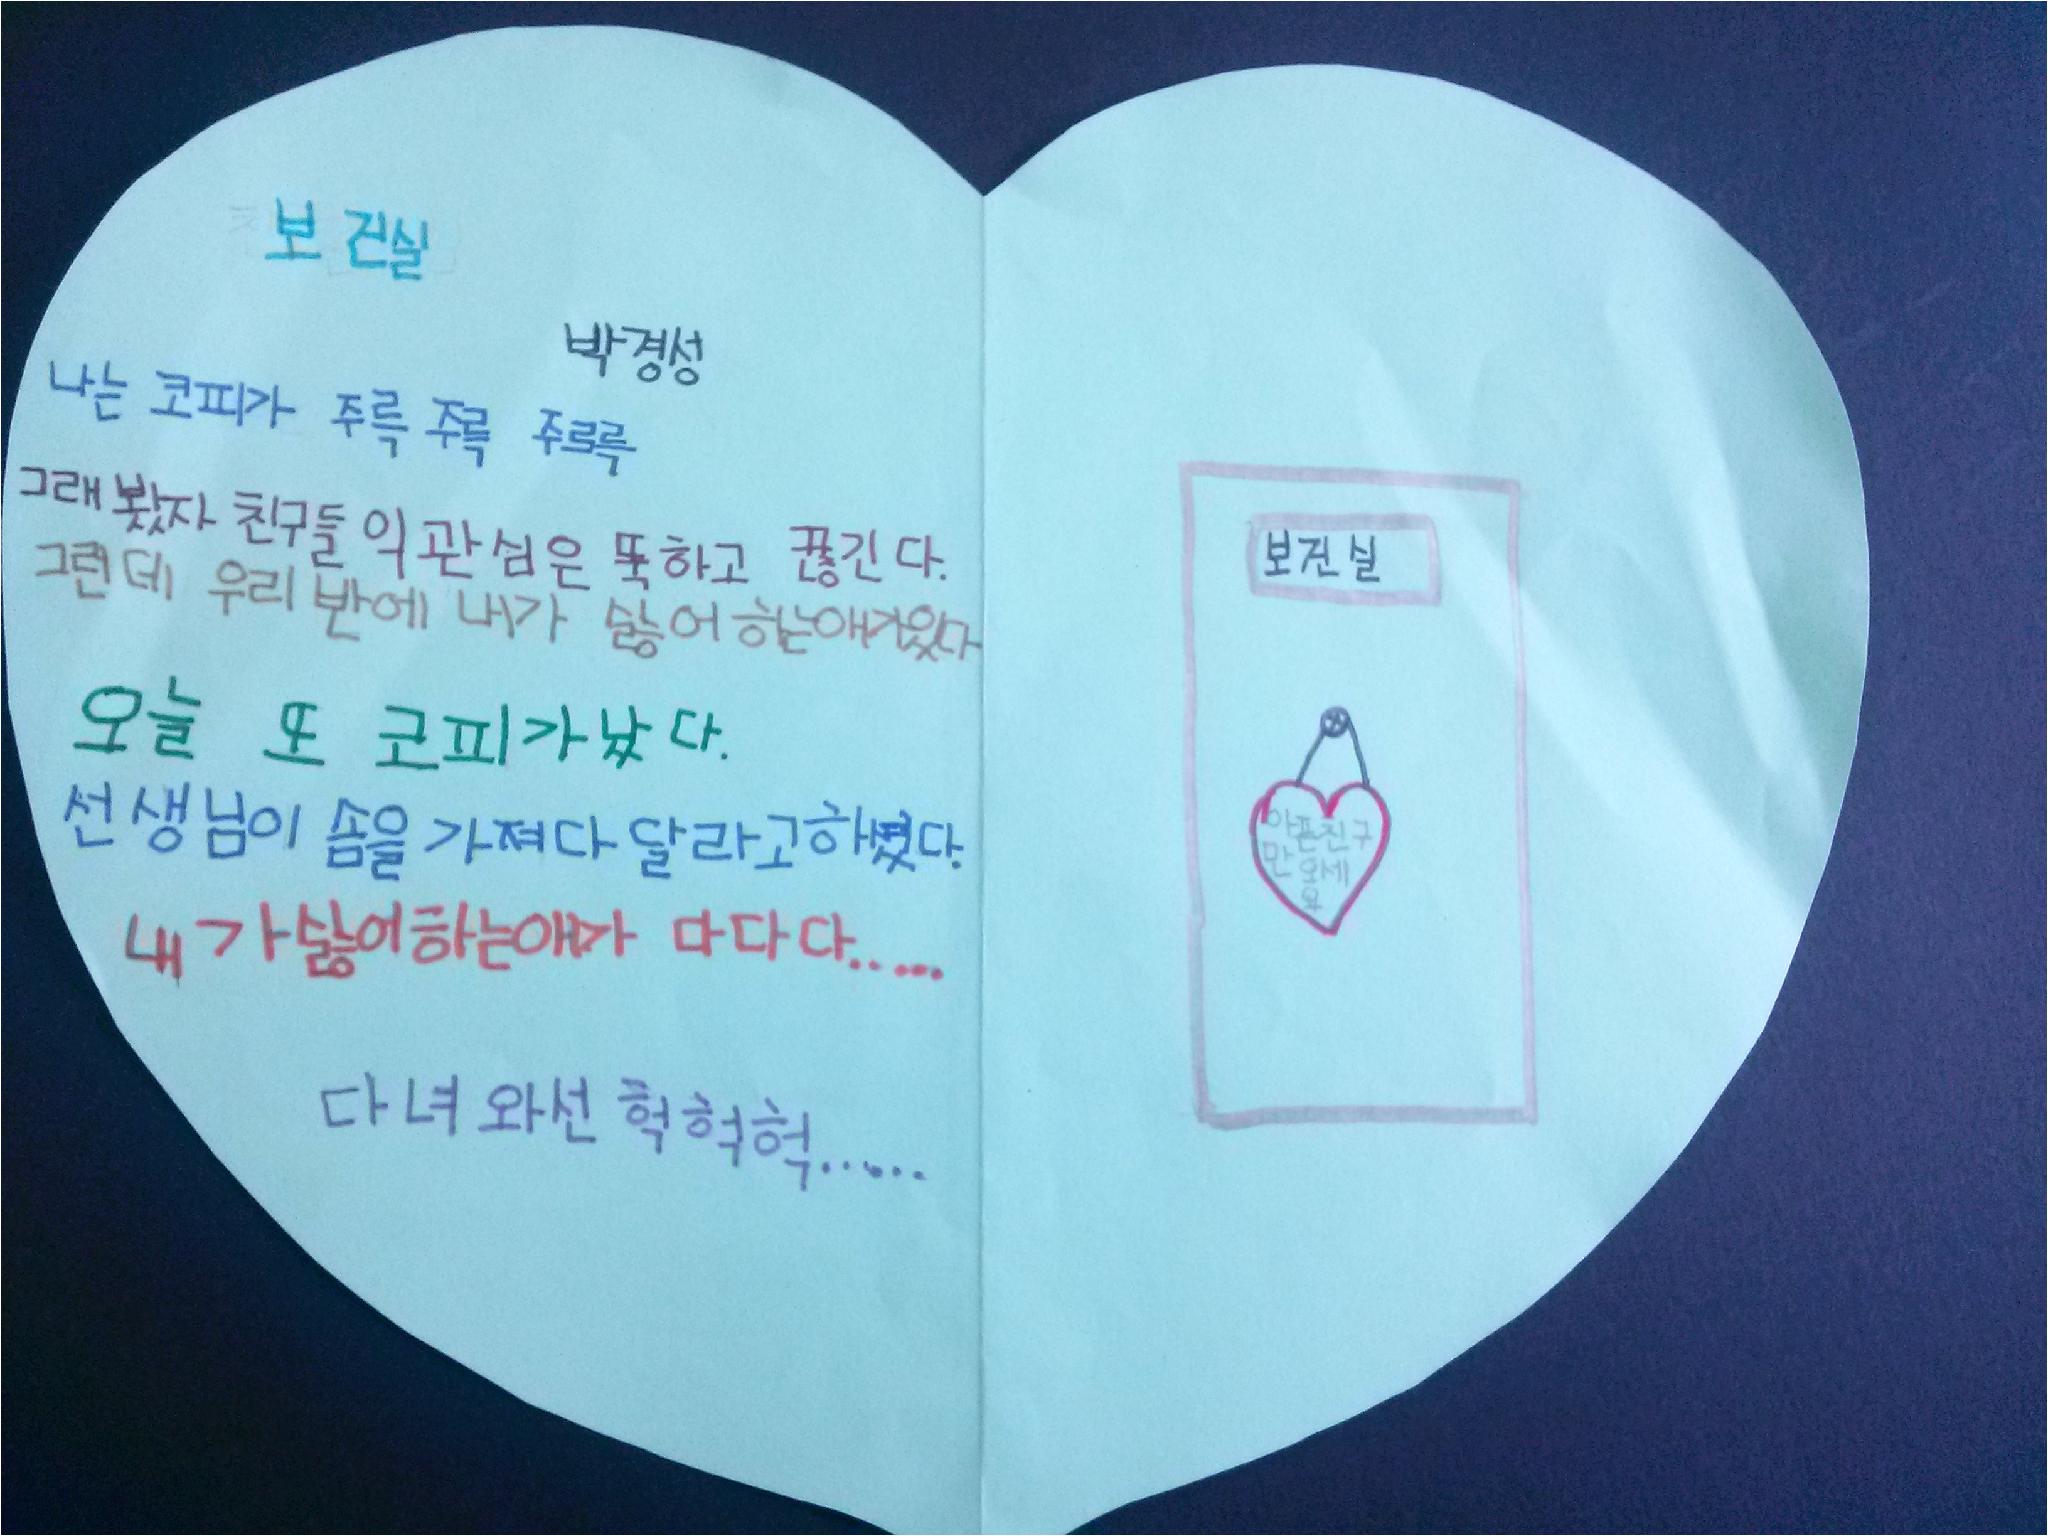 보건실
박경성
나는 코피가 주륵 주륵 주르륵
그래봤자 친구들의 관심은 뚝하고 끊긴다.
그런데 우리 반에 내가 싫어하는애가있다
오늘 또 코피가났다.
선생님이 솜을 가져다 달라고하셨다.
내가싫어하는애가 다다다.....
다녀와선 헉헉헉......
보건실
아픈친구
만 오세
요